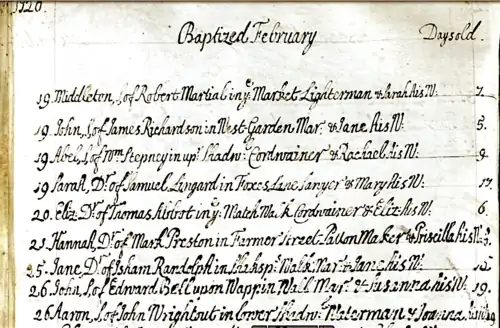 1720.
Baptized February Days old.
19. Middleton, S. of Robert Martial in ye. Market Lighterman & Sarah his W: 7.
19. John, S. of James Richardson in West Garden Mar. & Jane his W: 5.
19 Abel, S. of Wm Stepney in upr. Shadw: Cordwainer & Rachael his W: 9
19 Sarah, Dr. of Samuel Lingard in Foxes Lane Sawyer & Mary his W:
20. Eliz. Dr. of Thomas Abbot in ye. Match Walk Cordwainer & Eliz. his W: 6.
21. Hannah, Dr. of Mark Preston in Farmer Street Patton Maker & Priscilla his W: 3.
25. Jane, Dr. of Isham Randolph in Shakspr. Walk Mar. & Jane his W:
26. John, S. of Edward Bell upon Wappin Wall Mar. & Susanna his W: 19.
26. Aaron, S. of John Wrightout in lower Shadw: Waterman & Joanna his W